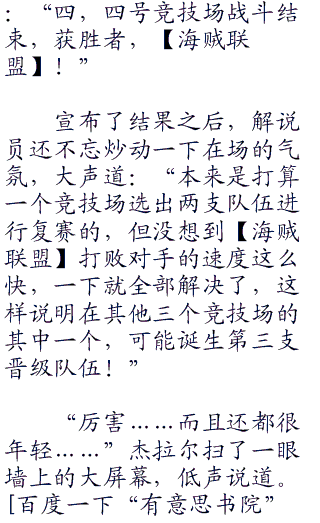 ：“四，四号竞技场战斗结
束，获胜者，【海贼联
盟】！”
宣布了结果之后，解说
员还不忘炒动一下在场的气
氛，大声道：“本来是打算
一个竞技场选出两支队伍进
行复赛的，但没想到【海贼
联盟】打败对手的速度这么
快，一下就全部解决了，这
样说明在其他三个竞技场的
其中一个，可能诞生第三支
晋级队伍！”
“厉害……而且还都很
年轻……”杰拉尔扫了一眼
墙上的大屏幕，低声说道。
[百度一下“有意思书院”